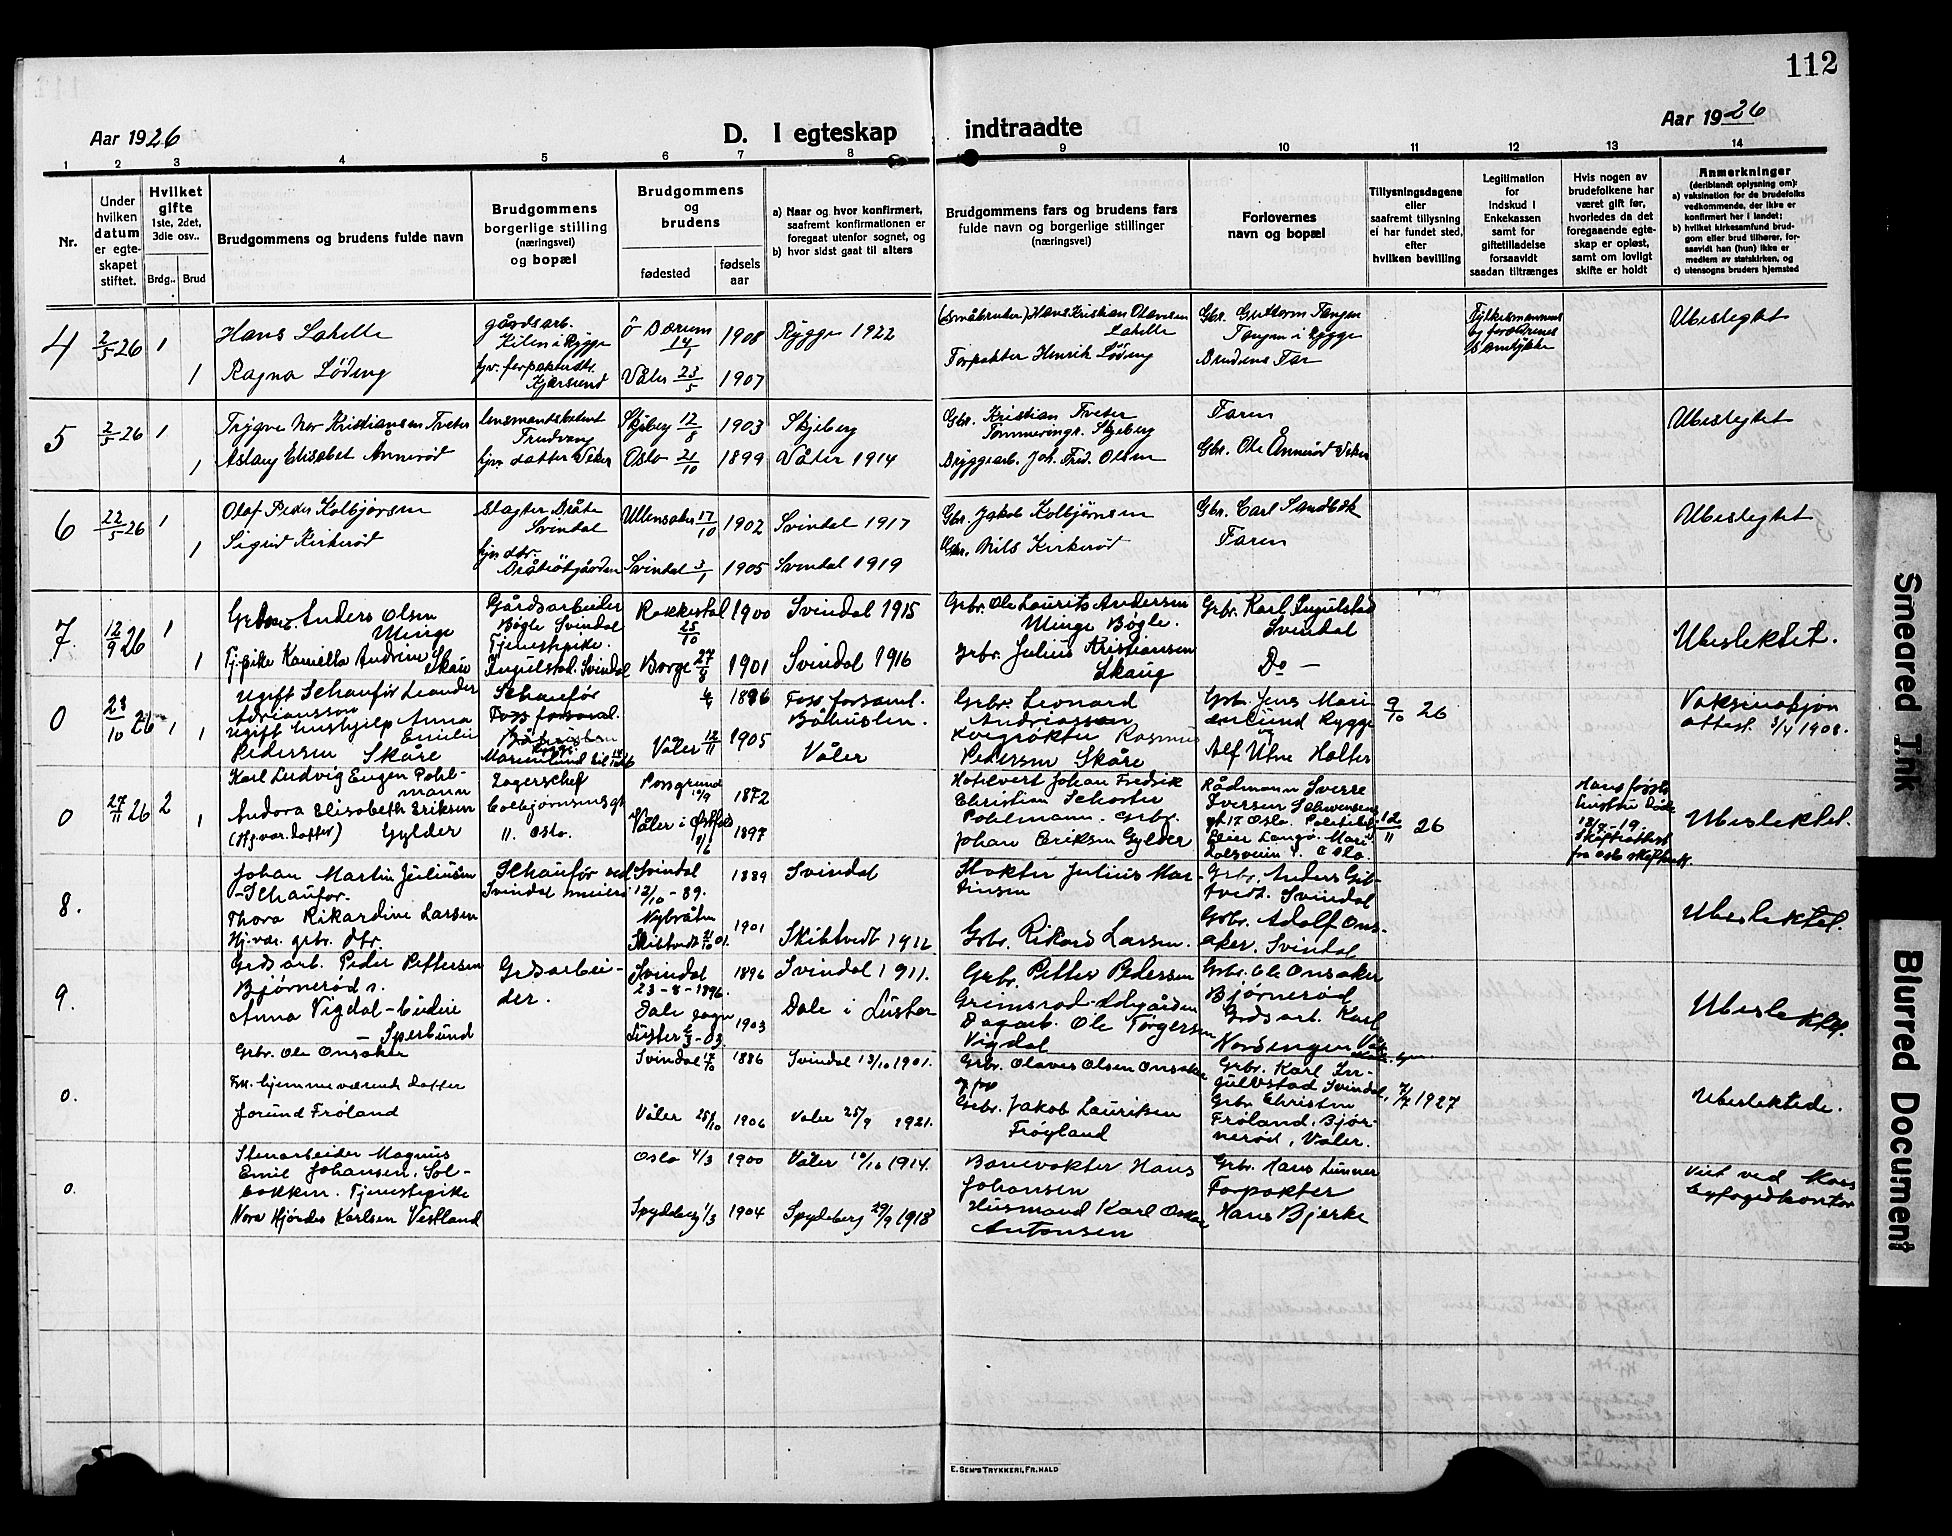 112
Aar 1926
D. I egteskap indtraadte
Aar 1926
1 2 3 4 5 6 7 8 9 10 11 12 13 14
Nr.
Under hvilken datum er egteskapet stiftet.
Hvilket gifte
1ste, 2det, 3die osv..
Brdg.. Brud
Brudgommens og brudens fulde navn
Brudgommens borgerlige stilling (næringsvei) og bopæl
Brudgommens og brudens
fødested
fødsels aar
a) Naar og hvor konfirmert, saafremt konfirmationen er foregaat utenfor sognet, og
b) hvor sidst gaat til alters
Brudgommens fars og brudens fars fulde navn og borgerlige stillinger (næringsvei)
Forlovernes navn og bopæl
Tillysningsdagene eller saafremt tillysning ei har fundet sted, efter hvilken bevilling
Legitimation for indskud i Enkekassen samt for giftetilladelse forsaavidt saadan tiltrænges
Hvis nogen av brudefolkene har været gift før, hvorledes da det foregaaende egteskap er opløst, samt om lovligt skifte er holdt
Anmerkninger
(deriblandt oplysning om):
a) vaksination for de brudefolks vedkommende, der ikke er konfirmert her i landet;
b) hvilket kirkesamfund brudgom eller brud tilhører, forsaavidt han (hun) ikke er medlem av statskirken, og
c) utensogns bruders hjemsted
4 2/5 26 1 Hans Lahelle gårdsarb. Kilen i Rygge Ø Bærum 14/1 1908 Rygge 1922
(småbruker) Hans Kristian Olavesen Lahelle
Gbr. Guttorm Tangen Tangen i Rygge
Fylkesmannens og foreldrenes samtykke
Ubeslegtet
1 Ragna Løding hjv. forpakterdtr. Kjærsund Våler 23/5 1907
Forpakter Henrik Løding
Brudens Far
5 2/5 26 1 Trygve Nor Kristiansen Tveter lensmandsbetent Trudvang Skjeberg 12/8 1903 Skjeberg
Gbr. Kristian Tveter Tømmeringr. Skjeberg
Faren
Ubeslegtet
1 Aslaug Elisabet Annerød hjv datter Veker Oslo 21/10 1899 Våler 1914
Bryggearb. Joh. Fred. Olsen
Gbr. Ole Ånnerød Veker
6 22/5 26 1 Olaf Peder Kolbjørsen slagter Bråte Svindal Ullensaker 17/10 1902 Svindal 1917
Gbr. Jakob Kolbjørnsen
Gbr. Carl Sandbæk
Ubeslegtet
1 Sigrid Kirkerød hjv dtr. Svindal 3/1 1905 Svindal 1919
Gbr. Nils Kirkerød
Faren
7. 12/9 26 1 Anders Olsen Minge Gårdsarbeider Bøgle Svindal Rakkestad 25/10 1900 Svindal 1915
Grbr. Ole Laurits Andersen Minge Bøgle.
Grbr. Karl Ingulstad Svindal
Ubeslektet.
1 Tj.pike Kamilla Andrine Skaug Tjenestepike. Ingulstad. Svindal Borge 27/8 1901 Svindal 1916
Grbr. Julius Kristiansen Skaug
Do —
0 23/10 26 1 ugift Schauför Leander Adriansson Schauför Foss forsaml. 1896 Foss forsaml. Båhuslen.
Grbr. Leonard Andriasson
Grb. Jens Marienlund Rygge
9/10 26
Vaksinasjon attest. 3/4 1908.
1 ugift hushjelp Anna Emilie Pedersen Skåre Marienlund Våler 12/11 1905 Våler
Kvegrøkter Rasmus Pedersen Skåre
og Alf Utne Halter
0 27/11 26 2 Karl Ludvig Eugen Pohlmann Lagerschef Colbjørnsens gt 11. Oslo. Porsgrund 10/9 1872
Hotelvert Johan Fredrik Christian Schoster Pohlmann. Grbr.
Rådmann Sverre Iversen Schwensens gt 17 Oslo.
12/11 26
Hans første hustru døde 18/7-19. Skifteattest fra Oslo skifterett.
Ubeslektet.
1 Andora Elisabeth Eriksen (Hj.vær. datter) Gylder Våler i Østfold 9/6 1897
Johan Eriksen Gylder
8. Johan Martin Juliussen Schaufør. Schaufør ved Svindal meieri Svindal 12/10-89. 1889 Svindal
Slakter Julius Martinsen
Grbr. Anders Gibtvedt. Svindal
Ubeslektet.
Thora Rikardine Larsen Hj.vær. grbr. dtr. Nybråten Skibtvedt 21/10 01. 1901 Skibtvedt 1912
Grbr. Rikard Larsen.
Grbr. Adolf Onsaker. Svindal
9. Grds arb. Peder Pettersen Bjørnerød s. Grdsarbeider. Svindal 23-8-1896. 1896 Svindal 1911.
Grbr. Petter Pedersen Grimsrød
Grbr. Ole Onsaker Bjørnerød
Ubeslektet.
Anna Vigdal - Budeie - Sperlund Dale sogn Luster 2/3-03. 1903 Dale i Luster
Dagarb. Ole Torgersen Vigdal
Grdsarb. Karl Norsengen
0. Grbr. Ole Onsaker Svindal 17/10 1886 Svindal 13/10 1901.
Grbr. Olaves Olsen Onsaker
Grbr. Karl Ingulvstad Svindal,
7/7 1927
Ubeslektede.
Frk. hjemmeværende datter Jorund Frøland Våler 25/10 1906 Våler 25/9 1921.
Grbr. Jakob Lauritsen Frøyland
Grbr. Christen Frøland, Bjørnerød, Våler.
0. Stenarbeider Magnus Emil Johansen. Solbakken. Oslo 4/3 1900 Våler 10/10 1914.
Banevokter Hans Johansen
Grbr. Hans Lunner
Viet ved Moss byfogedkontor
Tjenestepike Nora Hjørdis Karlsen Vestland Spydeberg 1/3 1904 Spydeberg 29/9 1918
Husmand Karl Oskar Antonsen
Forpakter Hans Bjerke
E. SEM'S TRYKKERI, FR.HALD
Smeared Ink
Blurred Document